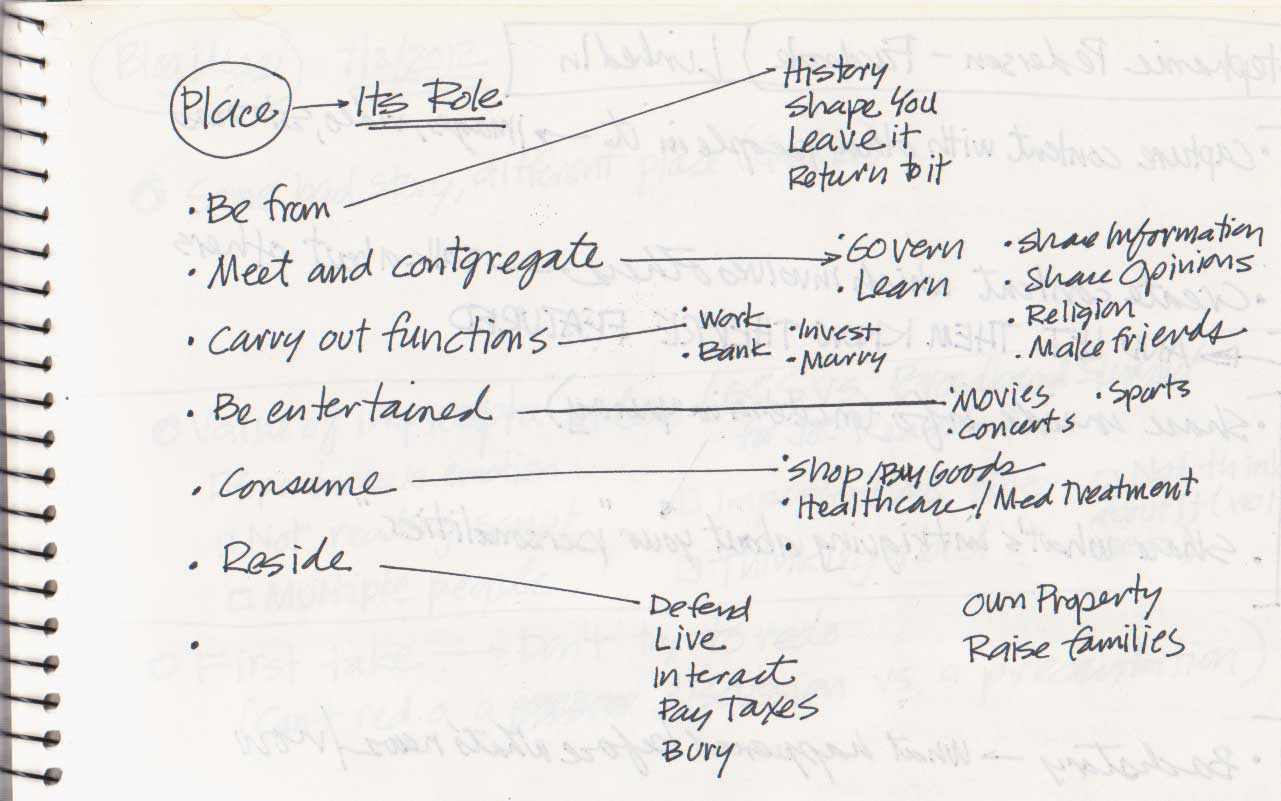 Place → Its Role
History
Shape You
Leave it
Return to it
• Be from
• Meet and contgregate
• Govern
• Learn
• Share Information
• Share Opinions
• Religion
• Make friends
• Carry out functions
• Work
• Bank
• Invest
• Marry
• Be entertained
• Movies
• Concerts
• Sports
• Consume
• Shop/Buy Goods
• Healthcare/Med Treatment
•
• Reside
Defend
Live
Interact
Pay Taxes
Bury
Own Property
Raise families
•